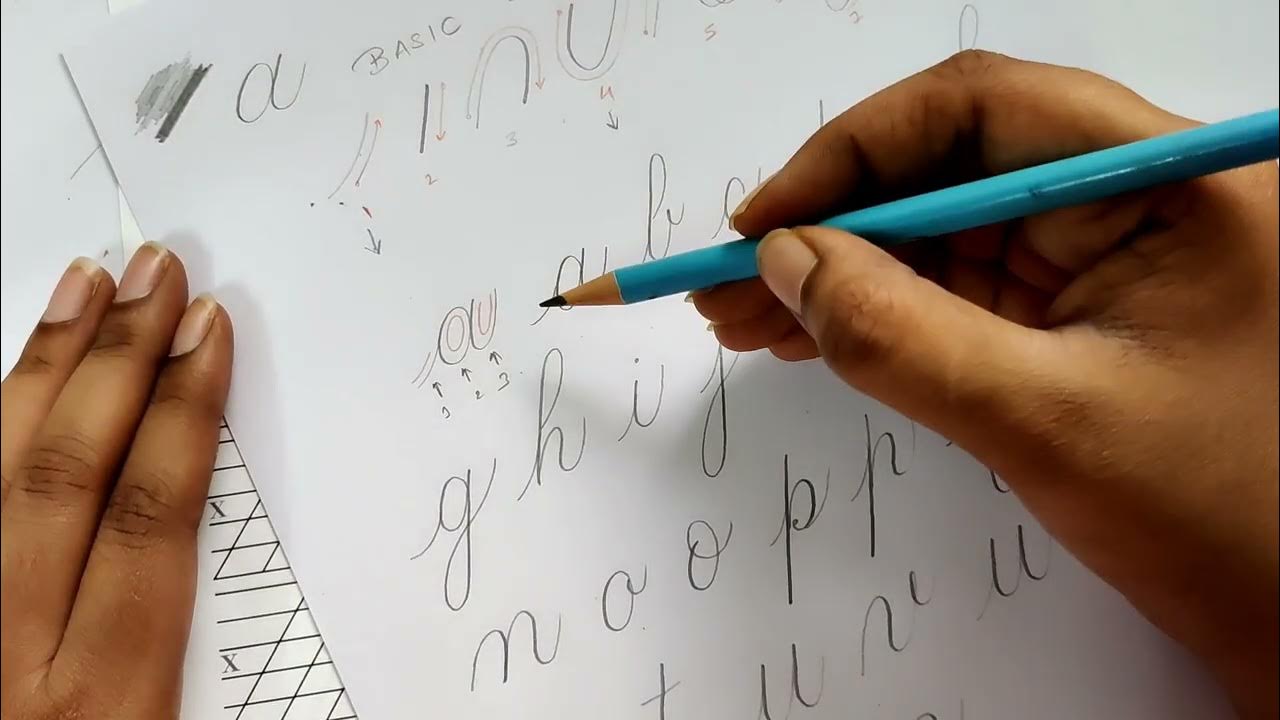 a BASIC
2 3 4 5 2
a b c
a
3 2 3
g h i j
n o o p p
t u r u
X
X